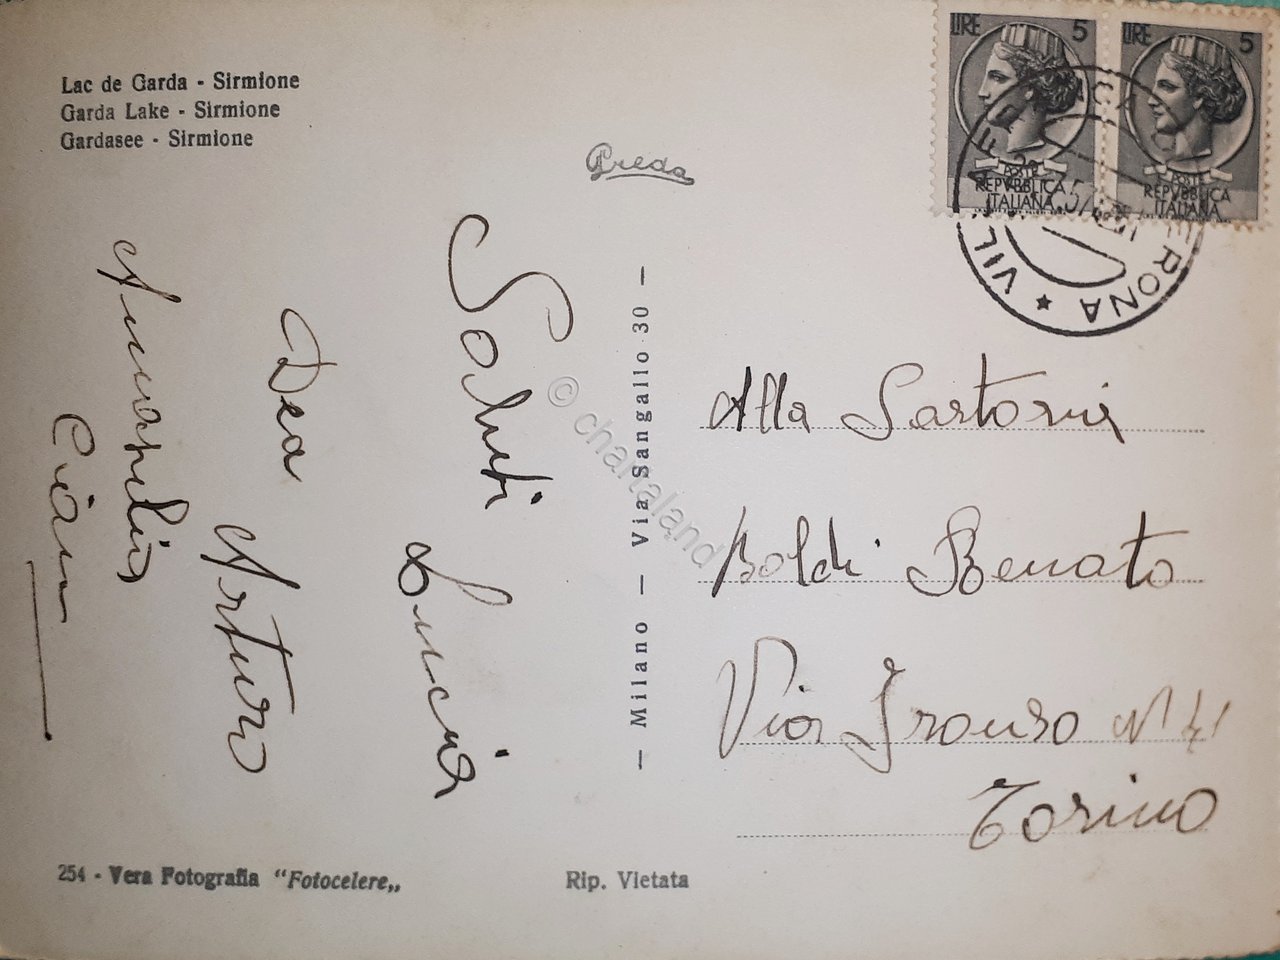 Lac de Garda - Sirmione
Garda Lake - Sirmione
Gardasee - Sirmione
Preda
LIRE 5
POSTE
REPVBBLICA
ITALIANA
LIRE 5
POSTE
REPVBBLICA
ITALIANA
VERONA ★ VILL
Saluti Lucia
Dea Arturo
Ciau
— Milano — Via Sangallo 30 —
Alla Sartoria
Boldi Renato
Via N 41
Torino
254 - Vera Fotografia “Fotocelere„
Rip. Vietata
© chartaland